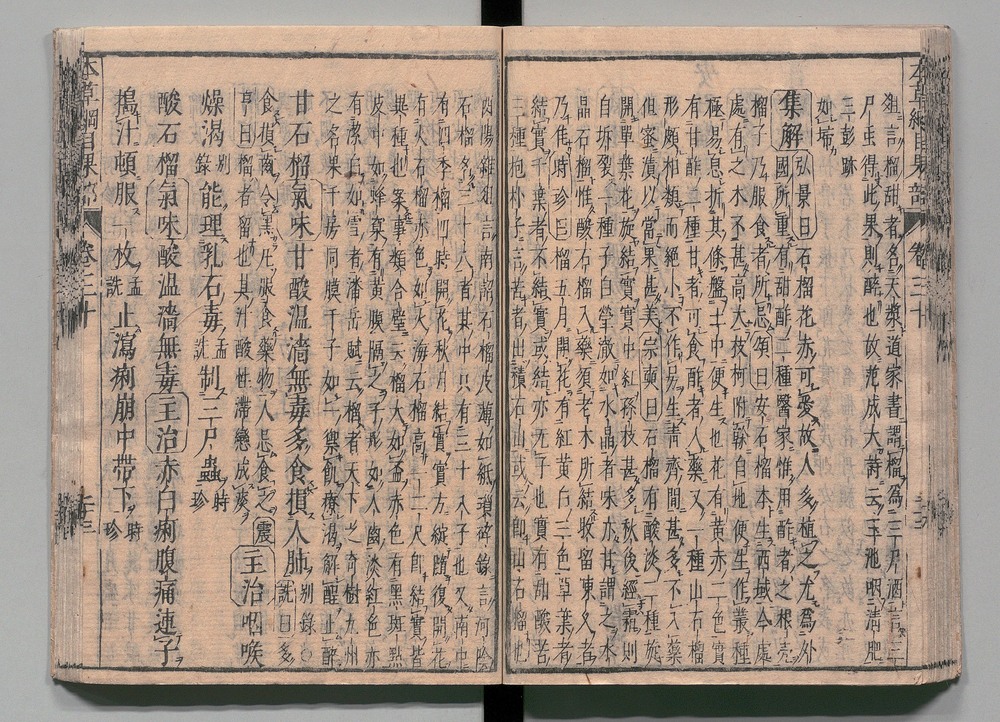 狙言榴甜者名天漿道家書謂榴為三尸酒言三
尸虫得此果則醉也故范成大詩云玉池咽清肥
三彭跡如掃
集解弘景曰石榴花赤可愛故人多植之尤為外
國所重有甜酢二種醫家惟用酢者之根殼
榴子乃服食者所忌頌曰安石榴本生西域今處
處有之木不甚高大枝柯附榦自地便生作叢種
極易息折其條盤土中便生也花有黃赤二色實
有甘酢二種甘者可食酢者入藥又一種山石榴
形頗相類而絕小不作房生青齊間甚多不入藥
但蜜漬以當果甚美宗奭曰石榴有酸淡二種旋
開單葉花旋結實實中紅孫枝甚多秋後經霜則
自坼裂一種子白瑩澈如水晶者味亦甘謂之水
晶石榴惟酸石榴入藥須老木所結收留陳久者
乃佳時珍曰榴五月開花有紅黃白三色單葉者
結實千葉者不結實或結亦无子也實有甜酸苦
三種抱朴子言苦者出積石山或云即山石榴也
酉陽雜俎言南詔石榴皮薄如紙瑣碎錄言河陰
石榴名三十八者其中只有三十八子也又南中
有四季榴四時開花秋月結實實方綻隨復開花
有火石榴赤色如火海石榴高一二尺即結實皆
異種也案事類合璧云榴大如盃赤色有黑斑點
皮中如蜂窠有黃膜隔之子形如人齒淡紅色亦
有潔白如雪者潘岳賦云榴者天下之奇樹九州
之名果千房同膜千子如一禦飢療渴解酲止醉
甘石榴氣味甘酸溫濇無毒多食損人肺別錄詵曰多
食損齒令黑凡服食藥物人忌食之震
亨曰榴者留也其汁酸性滯戀成痰主治咽喉
燥渴別錄能理乳石毒孟詵制三尸蟲時珍
酸石榴氣味酸溫濇無毒主治赤白痢腹痛連子
擣汁頓服一枚孟詵止瀉痢崩中帶下時珍
本草綱目果部
卷三十
本草綱目果部
卷三十